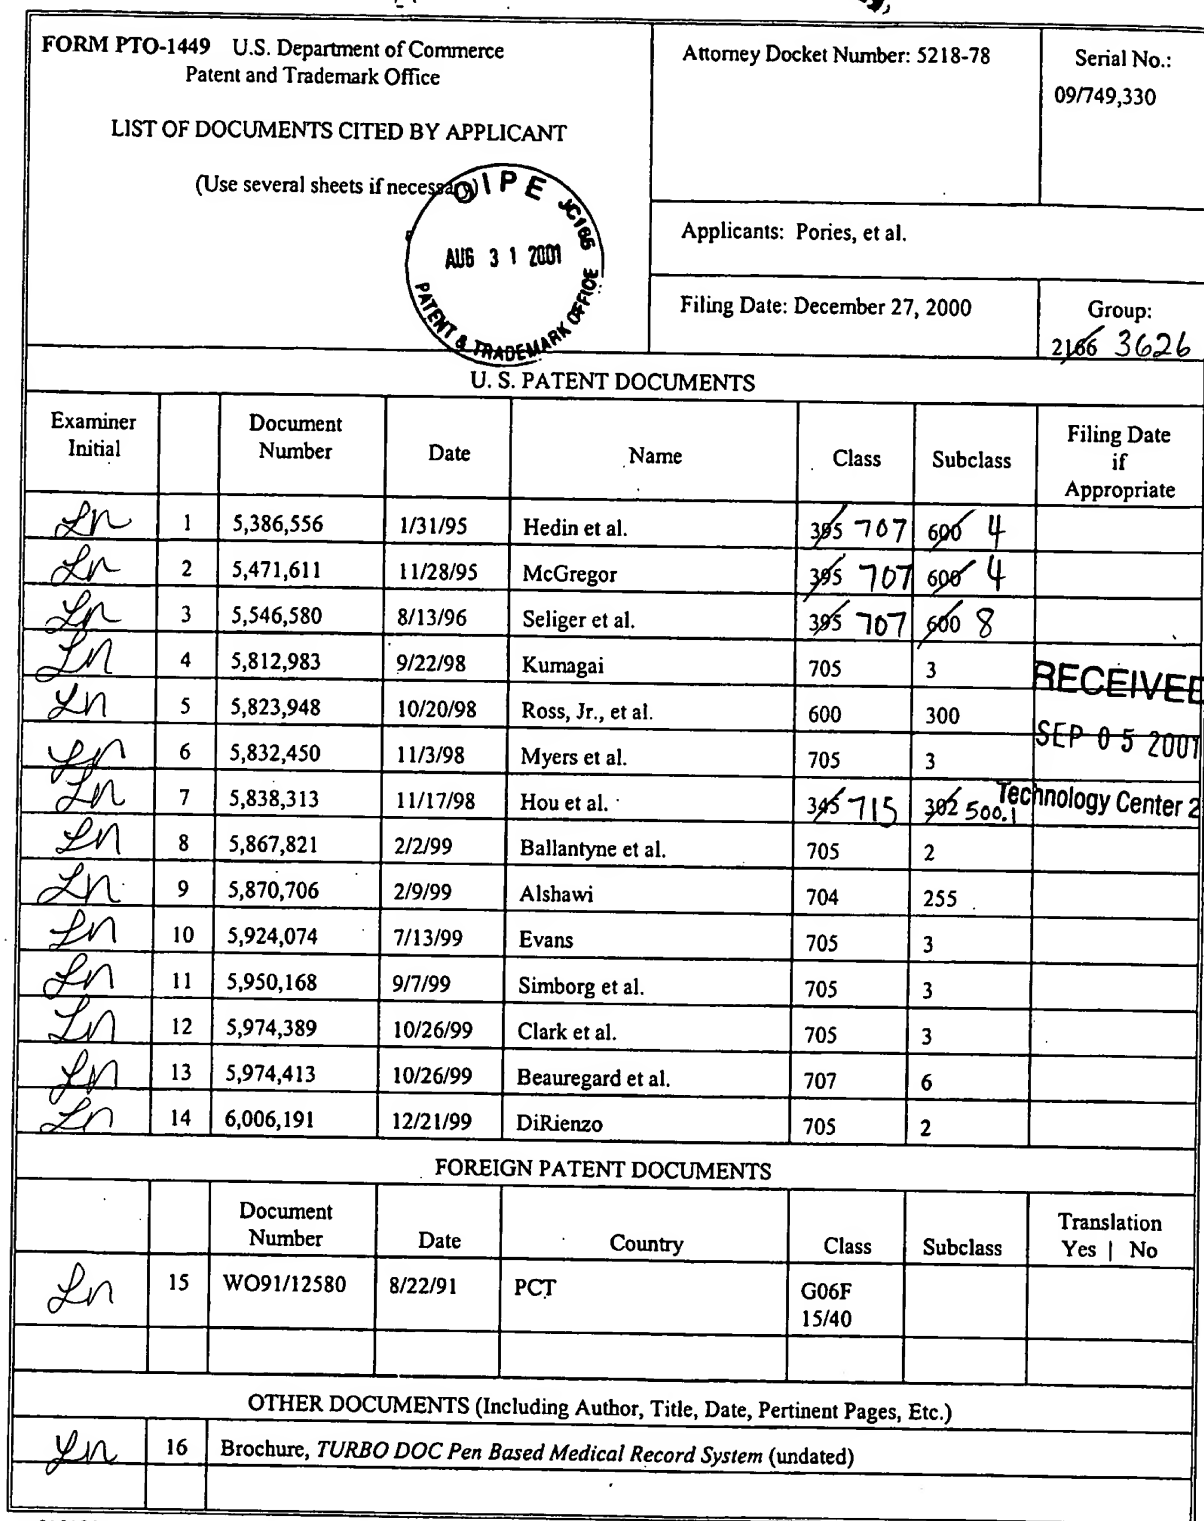 FORM PTO-1449 U.S. Department of Commerce
Patent and Trademark Office
LIST OF DOCUMENTS CITED BY APPLICANT
(Use several sheets if necessary)
OIPE JC165
AUG 31 2001
PATENT & TRADEMARK OFFICE
Attorney Docket Number: 5218-78
Serial No.:
09/749,330
Applicants: Pories, et al.
Filing Date: December 27, 2000
Group:
2166 3626
U. S. PATENT DOCUMENTS
Examiner Initial | Document Number | Date | Name | Class | Subclass | Filing Date if Appropriate
Ln 1 5,386,556 1/31/95 Hedin et al. 395 707 600 4
Ln 2 5,471,611 11/28/95 McGregor 395 707 600 4
Ln 3 5,546,580 8/13/96 Seliger et al. 395 707 600 8
Ln 4 5,812,983 9/22/98 Kumagai 705 3
RECEIVED
Ln 5 5,823,948 10/20/98 Ross, Jr., et al. 600 300
SEP 05 2001
Ln 6 5,832,450 11/3/98 Myers et al. 705 3
Ln 7 5,838,313 11/17/98 Hou et al. 345 715 302 500.1
Technology Center 2
Ln 8 5,867,821 2/2/99 Ballantyne et al. 705 2
Ln 9 5,870,706 2/9/99 Alshawi 704 255
Ln 10 5,924,074 7/13/99 Evans 705 3
Ln 11 5,950,168 9/7/99 Simborg et al. 705 3
Ln 12 5,974,389 10/26/99 Clark et al. 705 3
Ln 13 5,974,413 10/26/99 Beauregard et al. 707 6
Ln 14 6,006,191 12/21/99 DiRienzo 705 2
FOREIGN PATENT DOCUMENTS
Document Number | Date | Country | Class | Subclass | Translation Yes | No
Ln 15 WO91/12580 8/22/91 PCT G06F
15/40
OTHER DOCUMENTS (Including Author, Title, Date, Pertinent Pages, Etc.)
Ln 16 Brochure, TURBO DOC Pen Based Medical Record System (undated)